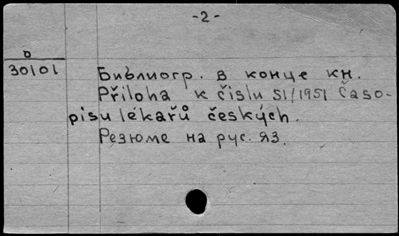 -2-
о
30101
Библиогр. в конце кн.
Příloha k číslu 51/1951 Časo-
pisu lékařů českých.
Резюме на рус. яз.